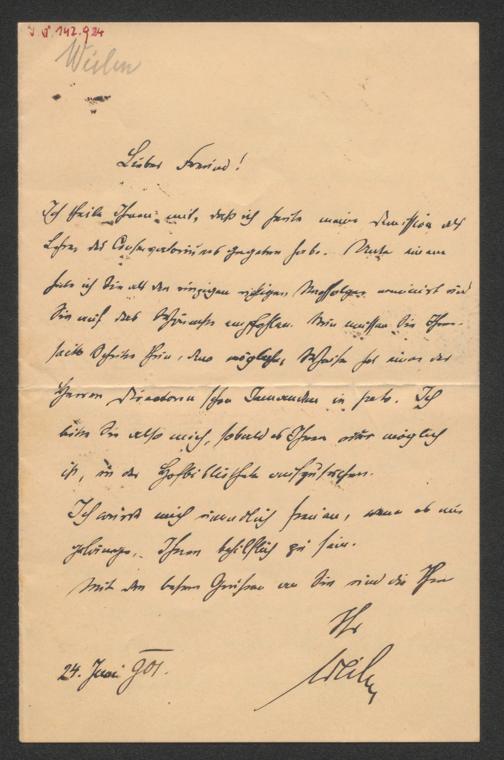 I.N. 142.924
Weilen
Lieber Freund!
Ich theile Ihnen mit, daß ich heute meine Demission als
Lehrer des Conservatoriums gegeben habe. Unter einem
habe ich Sie als den einzigen richtigen Nachfolger nominirt und
Sie auf das Wärmste empfohlen. Nun müssen Sie Ihrer-
seits Schritte thun, denn möglicher Weise hat einer der
Herren Directoren schon Jemanden in petto. Ich
bitte Sie also mich, sobald es Ihnen nur möglich
ist, in der Hofbibliothek aufzusuchen.
Ich würde mich unendlich freuen, wenn es mir
gelänge, Ihnen behilflich zu sein.
Mit den besten Grüßen an Sie und die Ihren
Ihr
Weilen
24. Juni 901.